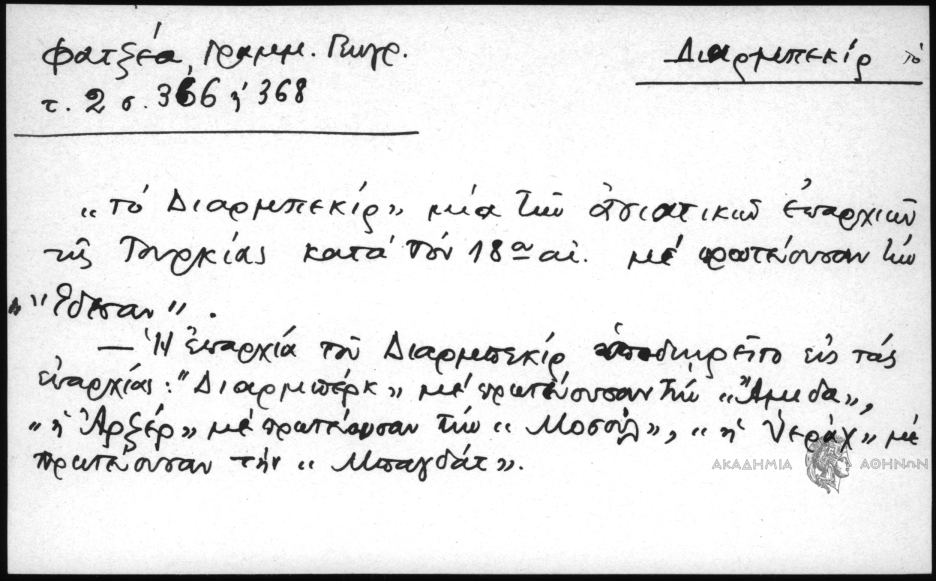 Φατζέα, Γραμμ. Γεωγρ.
τ. 2 σ. 366 ἤ 368
Διαρμπεκίρ τό
"τό Διαρμπεκίρ" μία τῶν ἀσιατικῶν ἐπαρχιῶν
τῆς Τουρκίας κατά τόν 18ον αἰ. μέ πρωτεύουσαν τήν
"Ἔδεσσαν".
— Ἡ ἐπαρχία τοῦ Διαρμπεκίρ ὑποδιῃρεῖτο εἰς τάς
ἐπαρχίας: "Διαρμπέρκ" μέ πρωτεύουσαν τήν "Ἄμιδα",
"ἡ Ἀρζέρ" μέ πρωτεύουσαν τήν "Μοσούλ", "ἡ Ἰεράχ" μέ
πρωτεύουσαν τήν "Μπαγδάτ".
ΑΚΑΔΗΜΙΑ ΑΘΗΝΩΝ